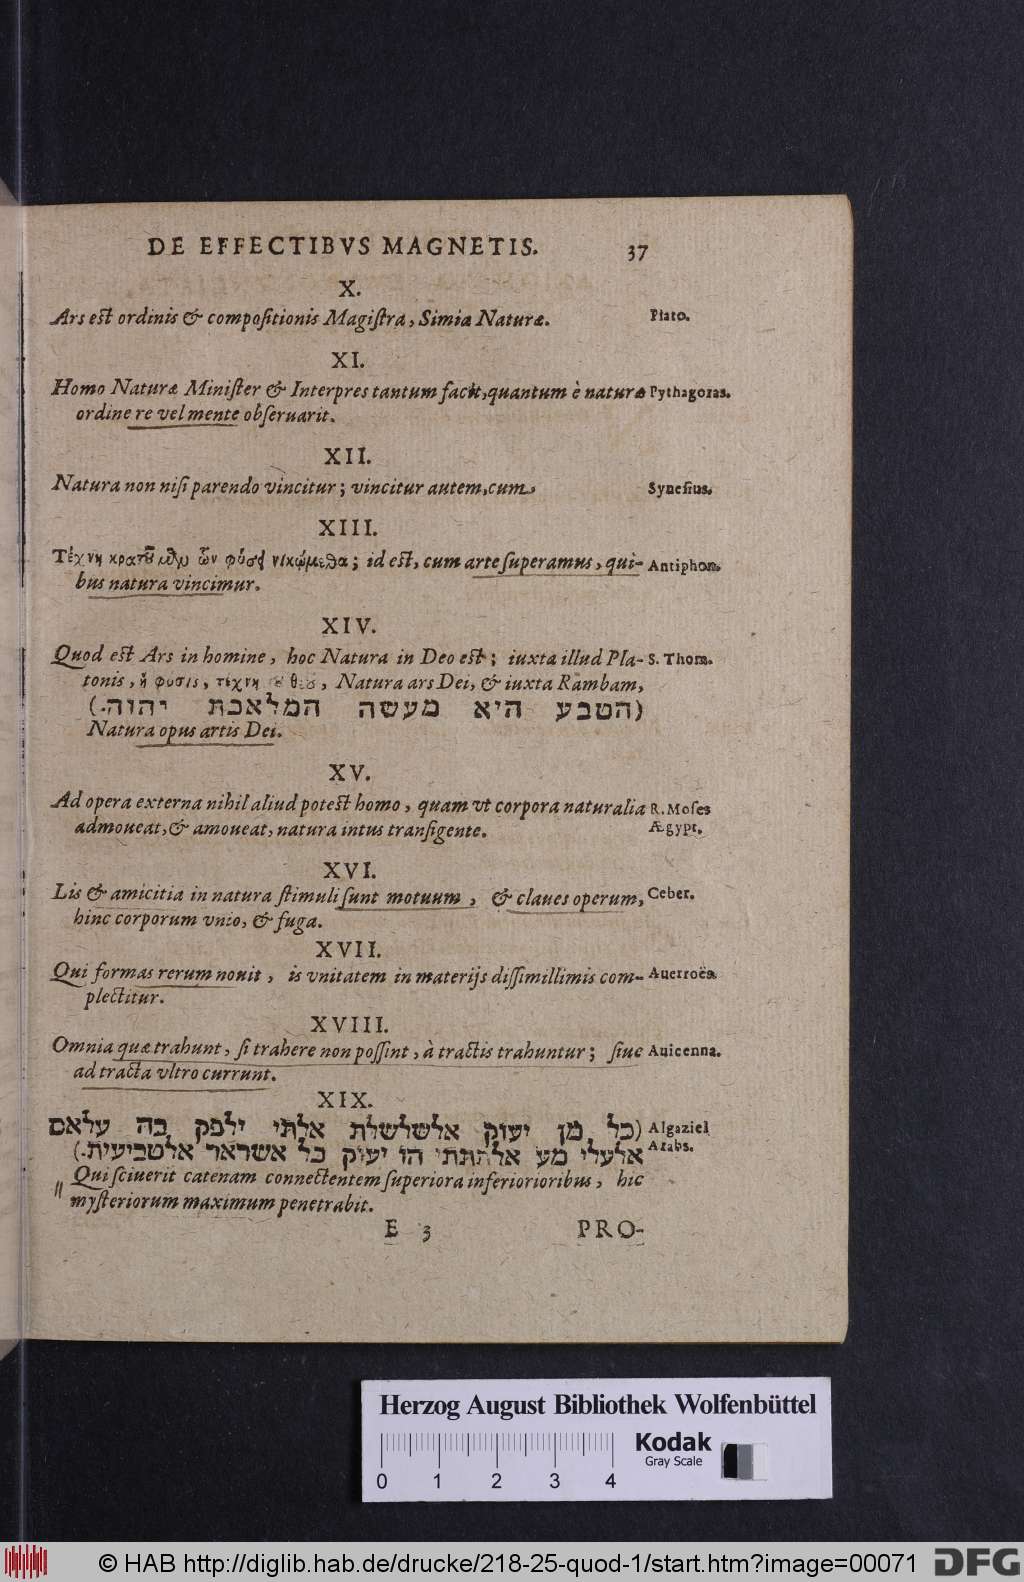 DE EFFECTIBVS MAGNETIS. 37
X.
Ars est ordinis & compositionis Magistra, Simia Naturæ. Plato.
XI.
Homo Naturæ Minister & Interpres tantum facit, quantum è naturæ Pythagoras.
ordine re vel mente obseruarit.
XII.
Natura non nisi parendo vincitur; vincitur autem, cum Synesius.
XIII.
Τέχνη κρατοῦμεν ὧν φύσει νικώμεθα; id est, cum arte superamus, qui- Antiphon.
bus natura vincimur.
XIV.
Quod est Ars in homine, hoc Natura in Deo est; iuxta illud Pla- S. Thom.
tonis, ἡ φύσις, τέχνη τοῦ θεοῦ, Natura ars Dei, & iuxta Rambam,
(הטבע היא מעשה המלאכת יהוה.)
Natura opus artis Dei.
XV.
Ad opera externa nihil aliud potest homo, quam vt corpora naturalia R. Moses
admoueat, & amoueat, natura intus transigente. Ægypt.
XVI.
Lis & amicitia in natura stimuli sunt motuum, & claues operum, Ceber.
hinc corporum vnio, & fuga.
XVII.
Qui formas rerum nouit, is vnitatem in materijs dissimillimis com- Auerroës.
plectitur.
XVIII.
Omnia quæ trahunt, si trahere non possint, à tractis trahuntur; siue Auicenna.
ad tracta vltro currunt.
XIX.
(כל מן יעוק אלשלשלת אלתי ילפק בה עלאם Algaziel
אלעלי מע אלתחתי הו יעוק כל אשראר אלטביעית.) Arabs.
Qui sciuerit catenam connectentem superiora inferiorioribus, hic
mysteriorum maximum penetrabit.
E 3 PRO-
Herzog August Bibliothek Wolfenbüttel
Kodak
Gray Scale
0 1 2 3 4
© HAB http://diglib.hab.de/drucke/218-25-quod-1/start.htm?image=00071
DFG